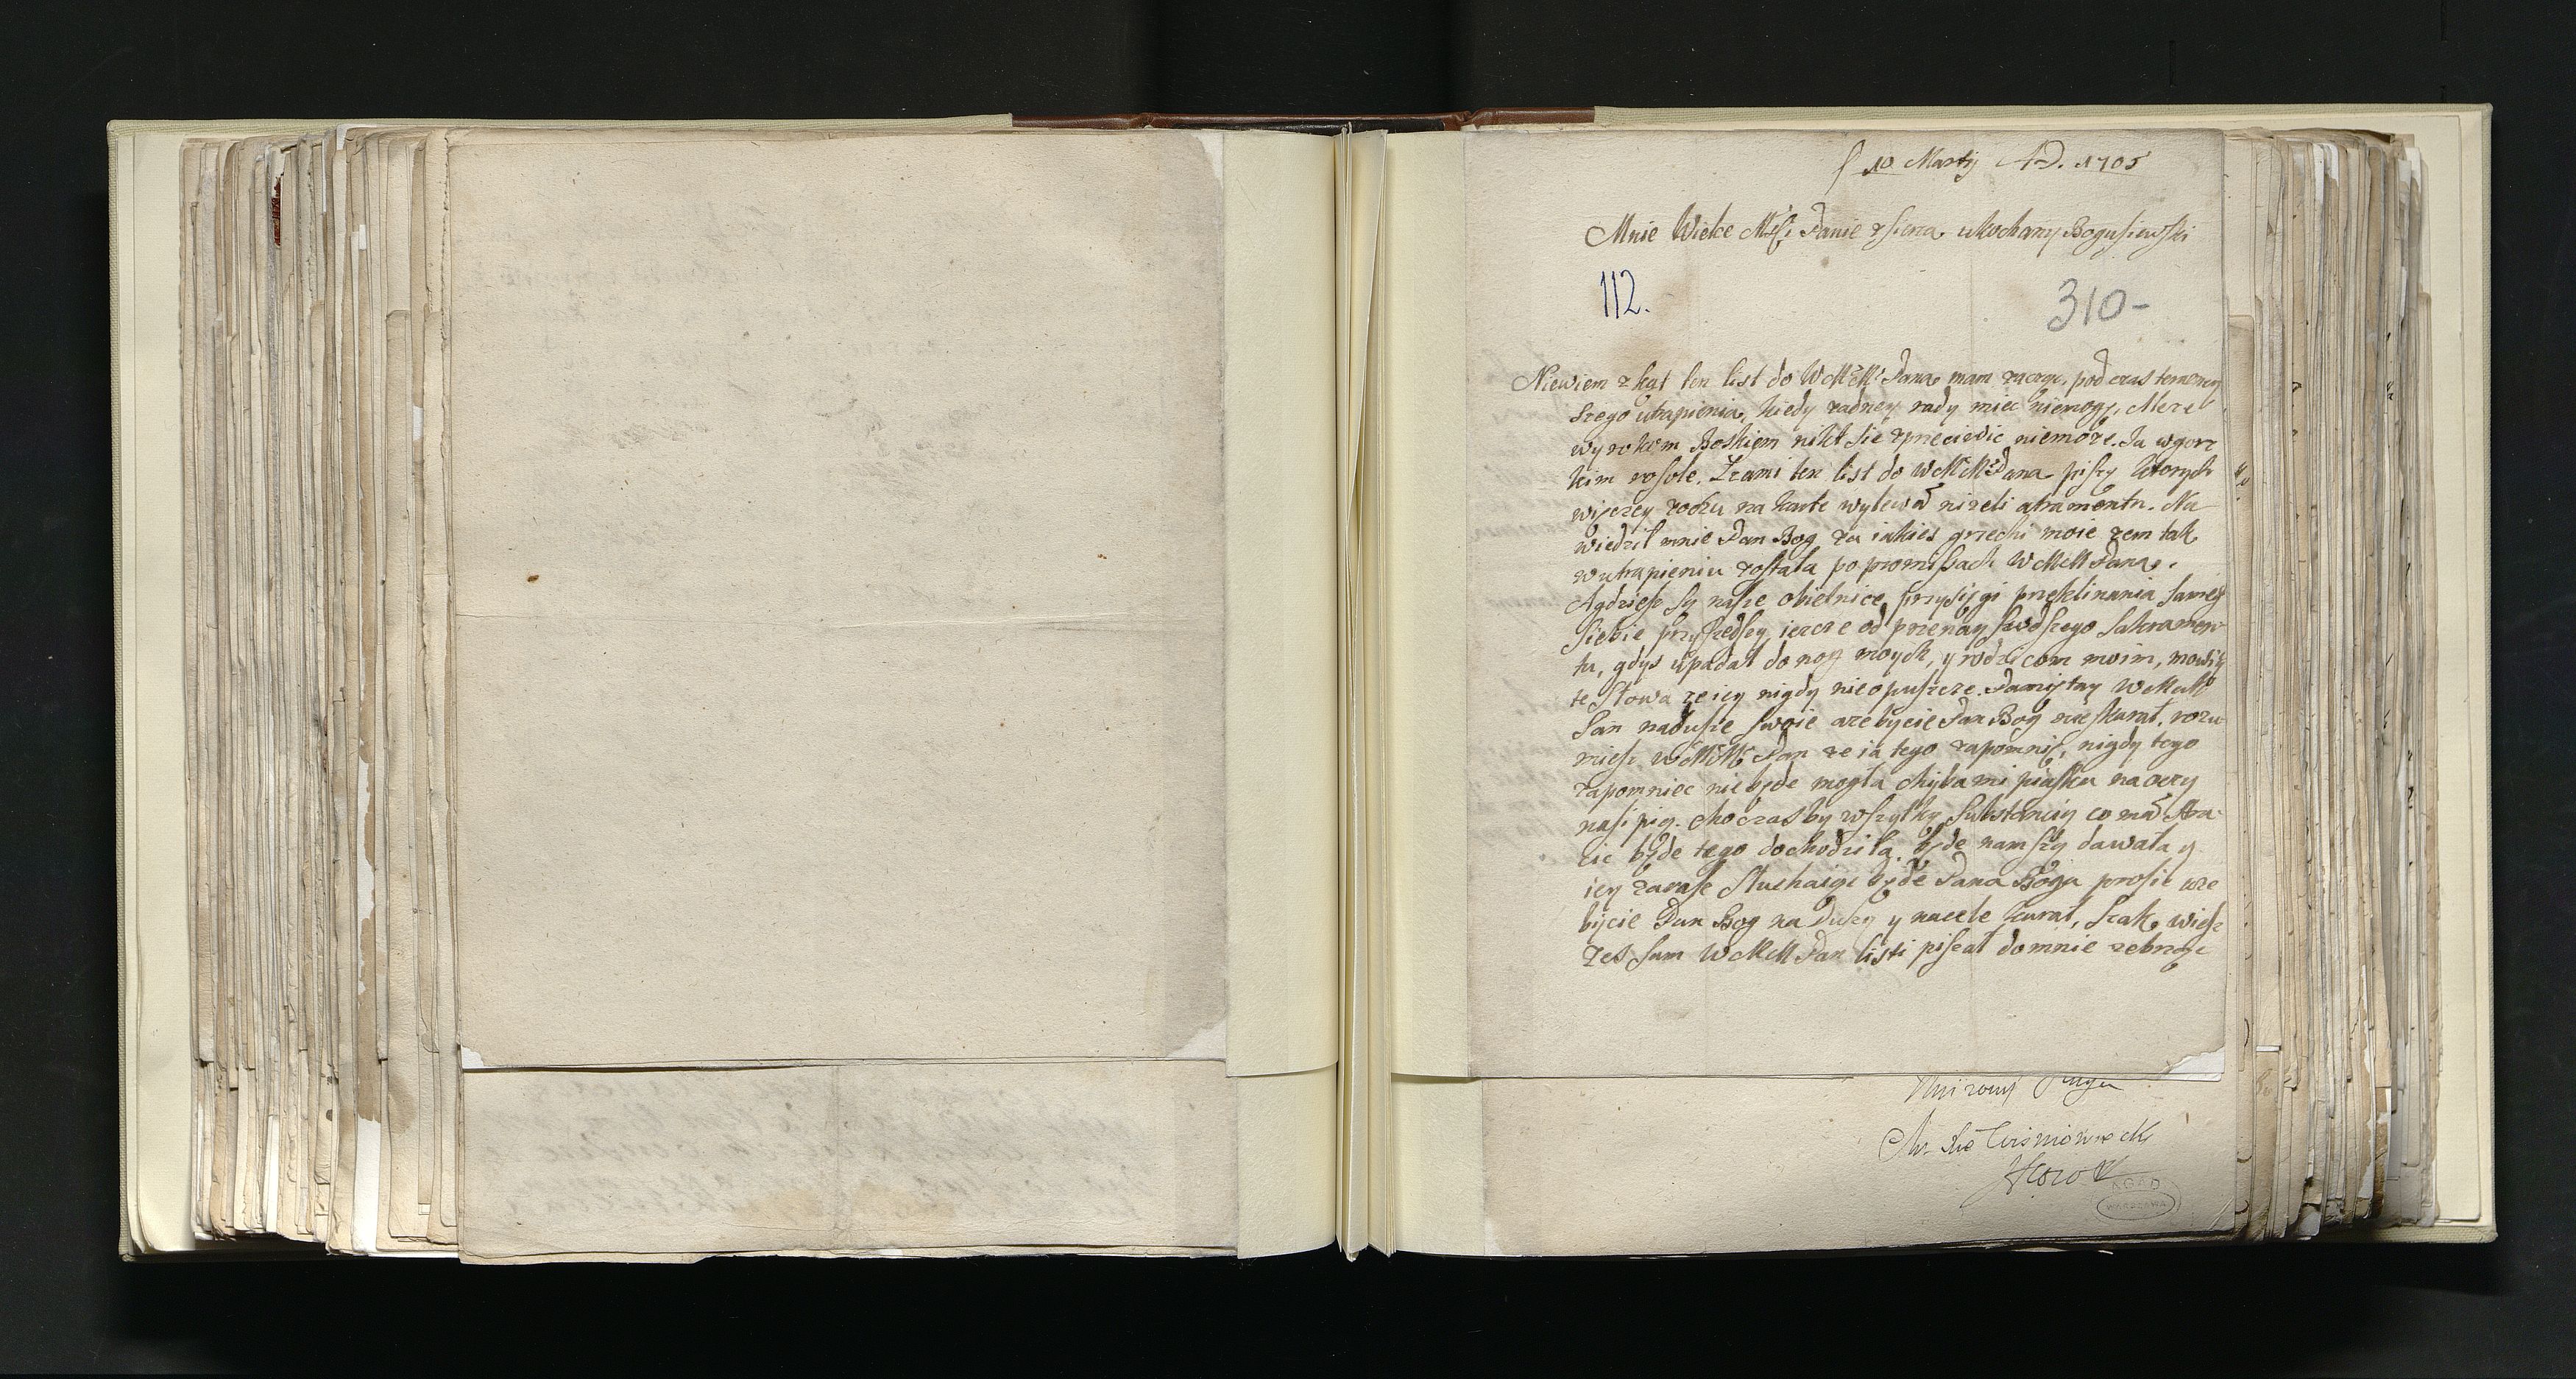 10 Martij AD. 1705
Mnie Wielce Mći Panie zserca ukochany Bogusiewski
112.
310-
Niewiem zkąt ten list do WMMPana mam zacząc, pod czas terazney
szego utrapienia, kiedy zadney rady miec niemogę. Ale ze
wyrokem Boskiem nikt sie zprzeciwic niemoze. Ja w gorz
kim rosole. Łzami ten list do WMMPana piszę ktorych
więczey zoczu na karte wylewa nizeli atramentu. Na
wiedzil mnie Pan Bog za iakies grzechi moie zem tak
w utrapieniu zostala po promissach WMMPana.
A gdziesz są nasze obietnice, przysięgi przeklinania samego
siebie przyszedszy ieszcze od przenayswdszego Sakramen-
tu, gdys upadal do nog moych, y rodzicom moim, mowiąc
te slowa ze iey nigdy nieopuszcze. Pamiętay WMM
Pan nadusze swoie azebycie Pan Bog nieskarał, rozu
miesz WMM Pan ze ia tego zapomnię, nigdy tego
zapomniec niebęde mogła chyba mi piasku na oczy
nasipią. choczasby wszytkę Substancią co ma stra-
cic będe tego dochodziła, będe na mszą dawała y
iey zawsze sluchaiąc będe Pana Boga prosic aze
bycie Pan Bog na duszy y naciele karał, szak wiesz
zes sam WMM Pan listi pisał domnie zebrząc
Sługa
Wisniowiecki
AGAD
WARSZAWA